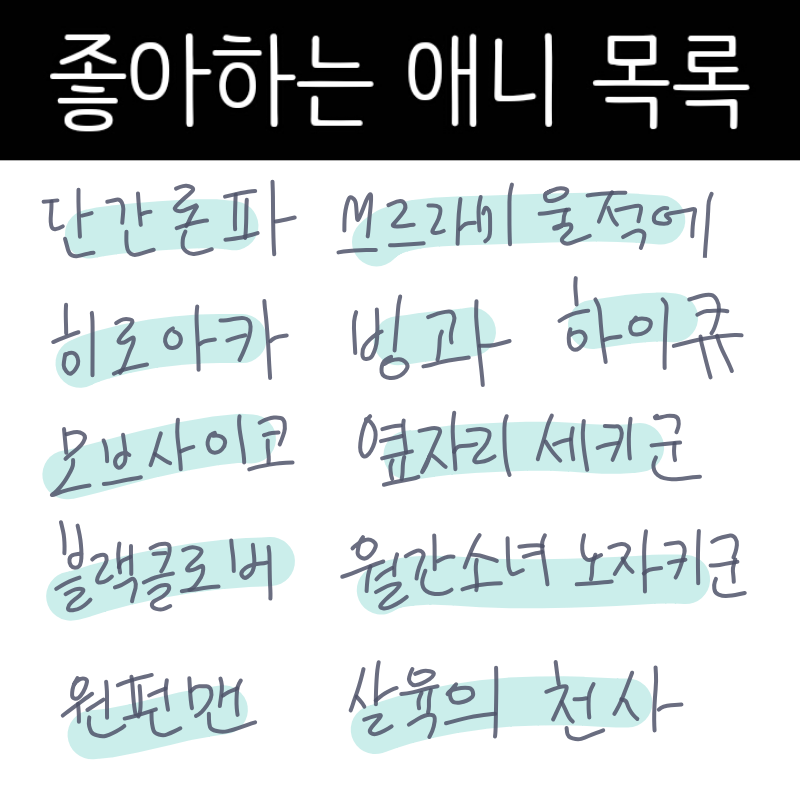 좋아하는 애니 목록
단간론파 쓰르라미 울적에
히로아카 빙과 하이큐
모브사이코 옆자리 세키군
블랙클로버 월간소녀 노자키군
원펀맨 살육의 천사